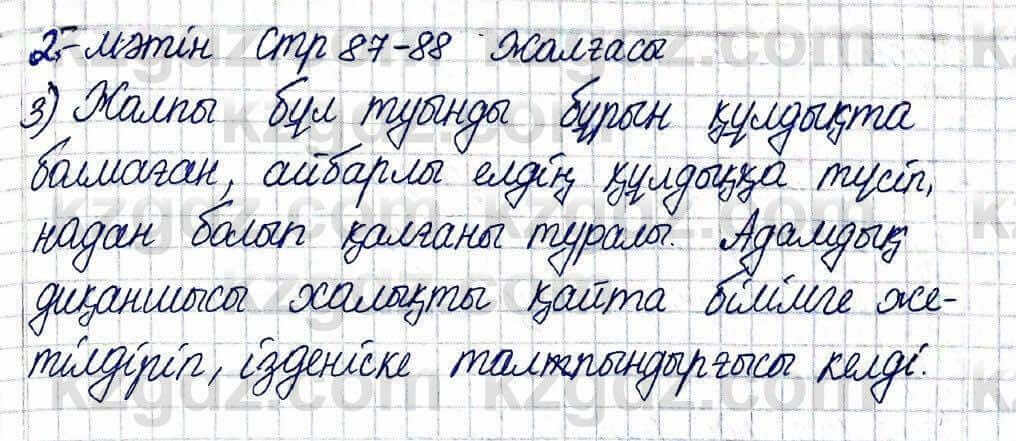 2-мәтін Стр 87-88 жалғасы
3) Жалпы бұл туынды бұрын құлдықта
болмаған, айбарлы елдің құлдыққа түсіп,
надан болып қалғаны туралы. Адамдық
диқаншысы халықты қайта білімге же-
тілдіріп, ізденіске талпындырғысы келді.
kzgdz.com